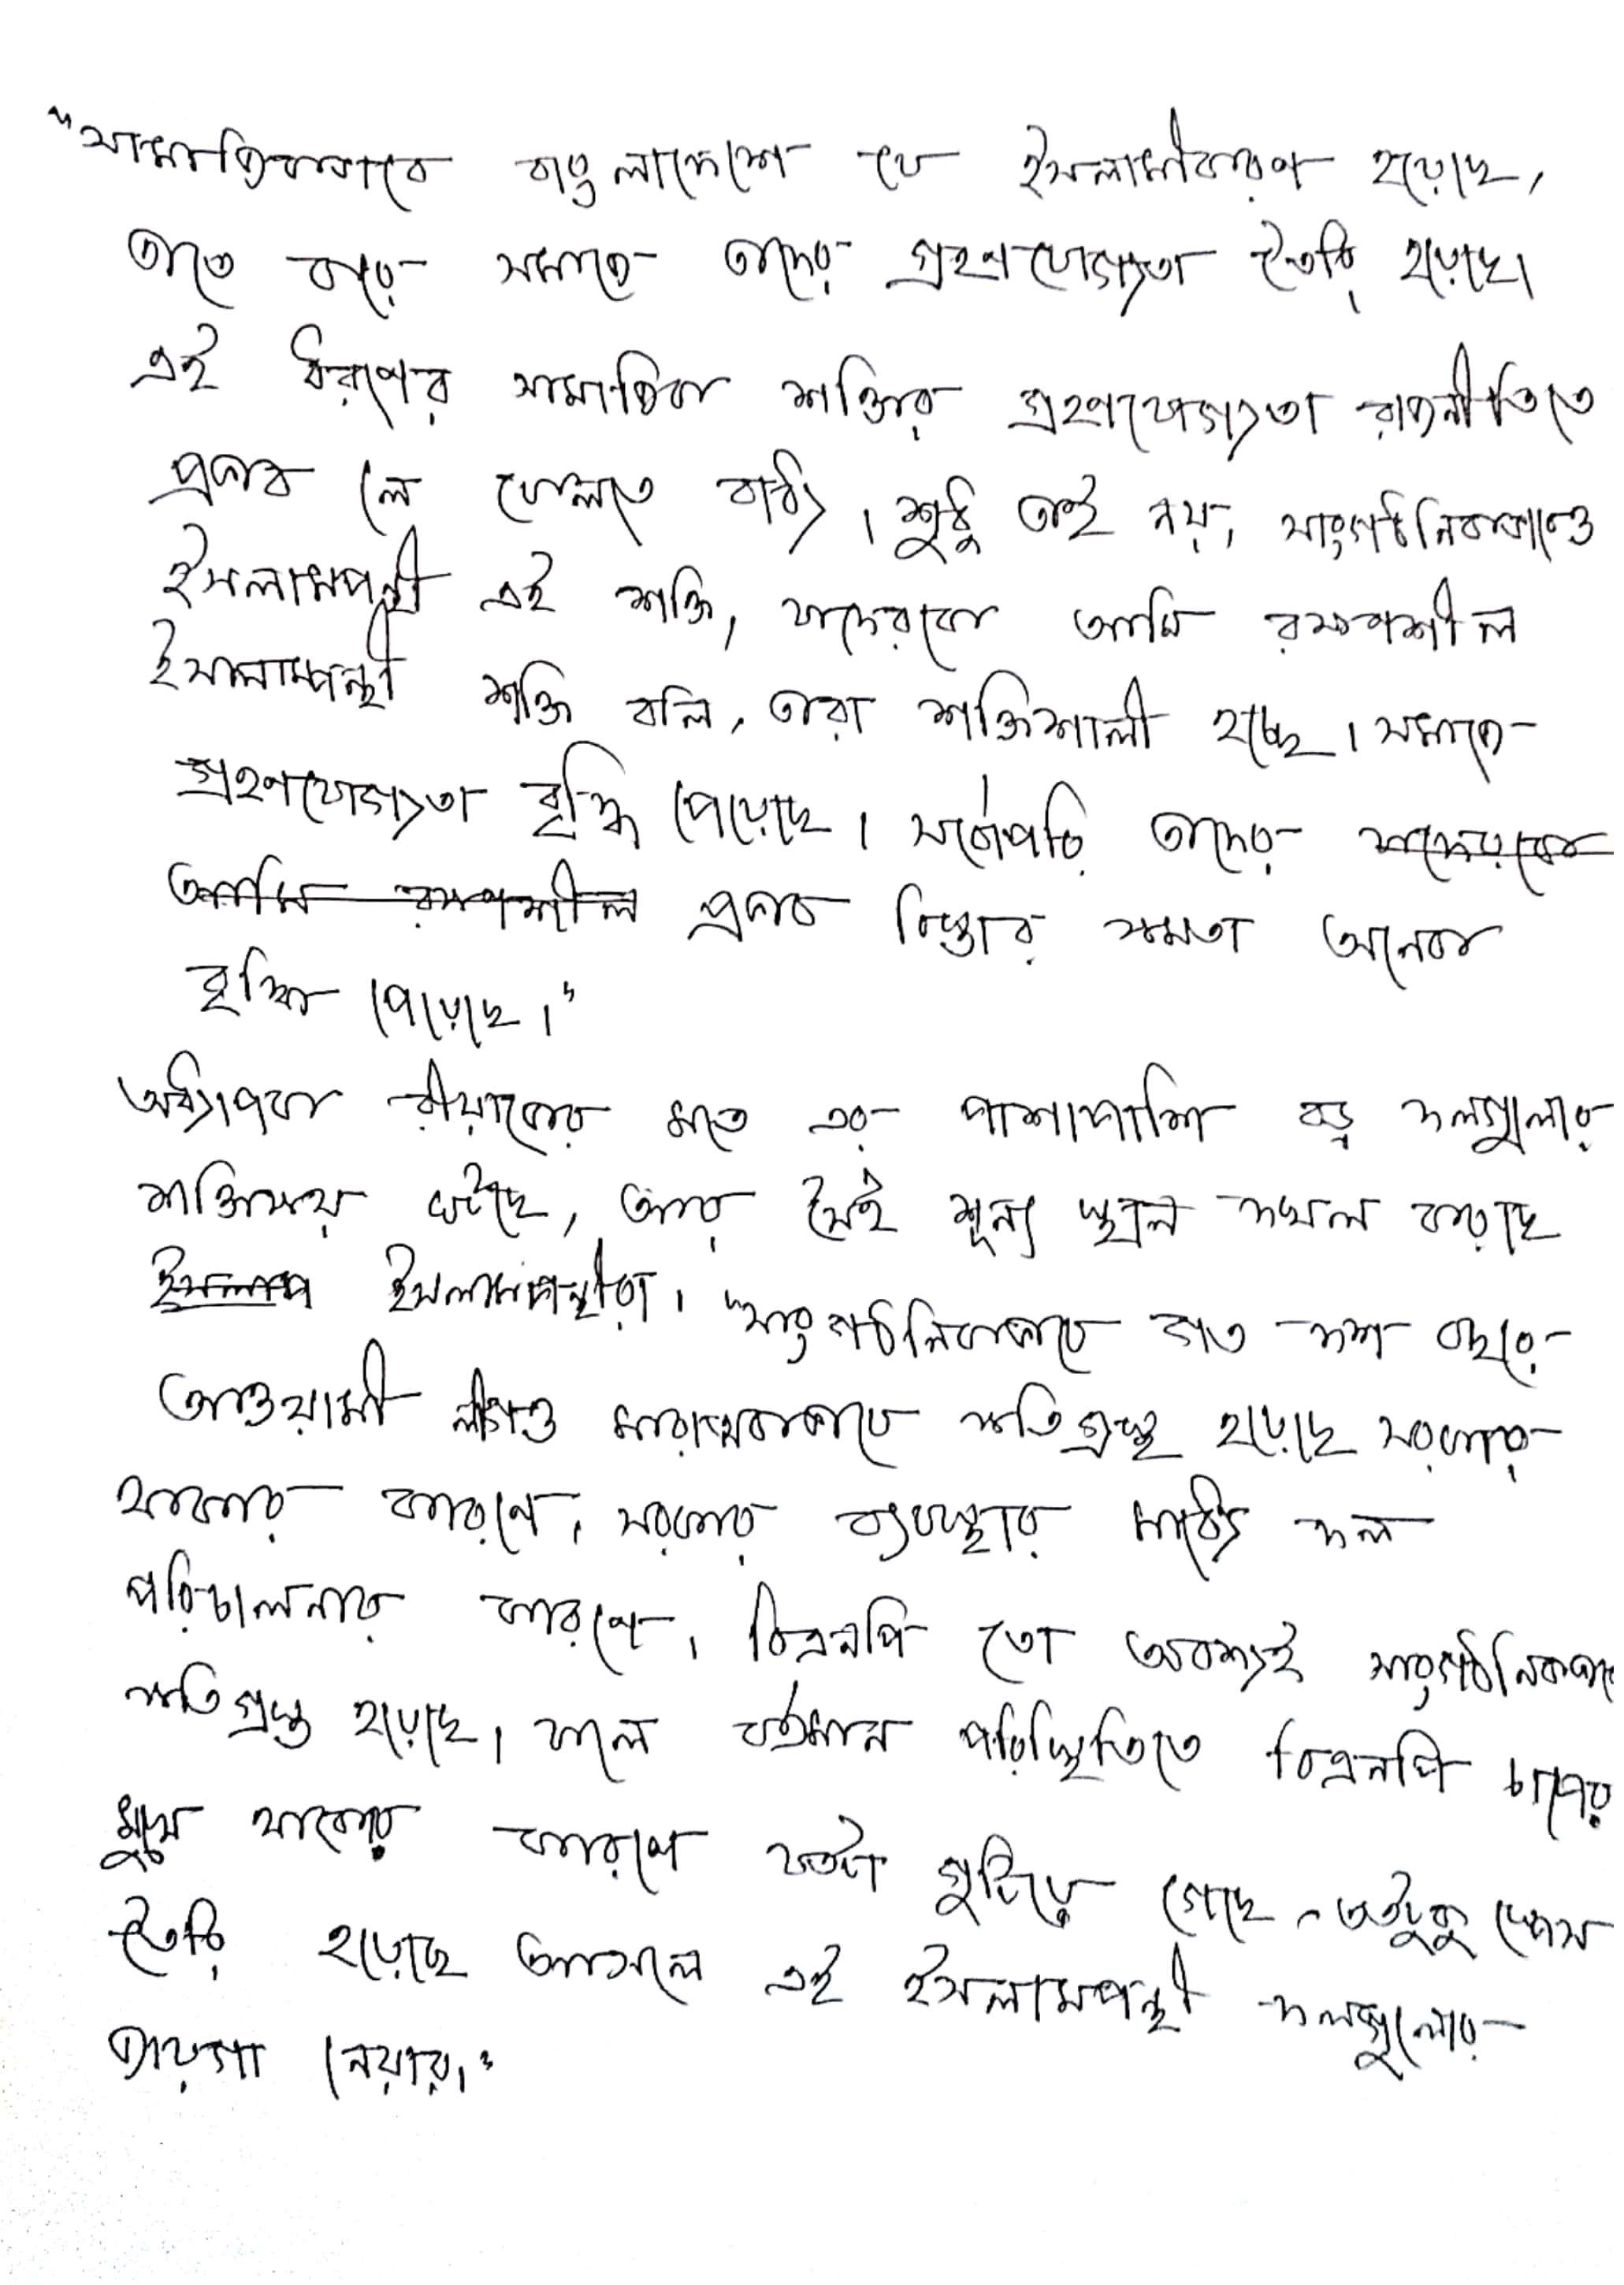 "সামাজিকভাবে বাংলাদেশে যে ইসলামীকরণ হয়েছে,
তাতে করে সমাজে তাদের গ্রহণযোগ্যতা তৈরি হয়েছে।
এই ধরণের সামাজিক শক্তির গ্রহণযোগ্যতা রাজনীতিতে
প্রভাব লে ফেলতে বাধ্য। শুধু তাই নয়, সাংগঠনিকভাবেও
ইসলামপন্থী এই শক্তি, যাদেরকে আমি রক্ষণশীল
ইসলামপন্থী শক্তি বলি, তারা শক্তিশালী হচ্ছে। সমাজে
গ্রহণযোগ্যতা বৃদ্ধি পেয়েছে। সর্বোপরি তাদের যাদেরকে
আমি রক্ষণশীল প্রভাব বিস্তার ক্ষমতা অনেক
বৃদ্ধি পেয়েছে।"
অধ্যাপক রীয়াজের মতে এর পাশাপাশি বড় দলগুলোর
শক্তিক্ষয় ঘটছে, আর সেই শূন্য স্থান দখল করছে
ইসলাম ইসলামপন্থীরা। "সাংগঠনিকভাবে গত দশ বছরে
আওয়ামী লীগও মারাত্মকভাবে ক্ষতিগ্রস্থ হয়েছে সরকারে
থাকার কারণে, সরকার ব্যবস্থার মধ্যে দল
পরিচালনার কারণে। বিএনপি তো অবশ্যই সাংগঠনিকভাবে
ক্ষতিগ্রস্ত হয়েছে। ফলে বর্তমান পরিস্থিতিতে বিএনপি চাপের
মুখে থাকার কারণে যতটা গুটিয়ে গেছে, ততটুকু স্পেস
তৈরি হয়েছে আসলে এই ইসলামপন্থী দলগুলোর
জায়গা নেয়ার।"